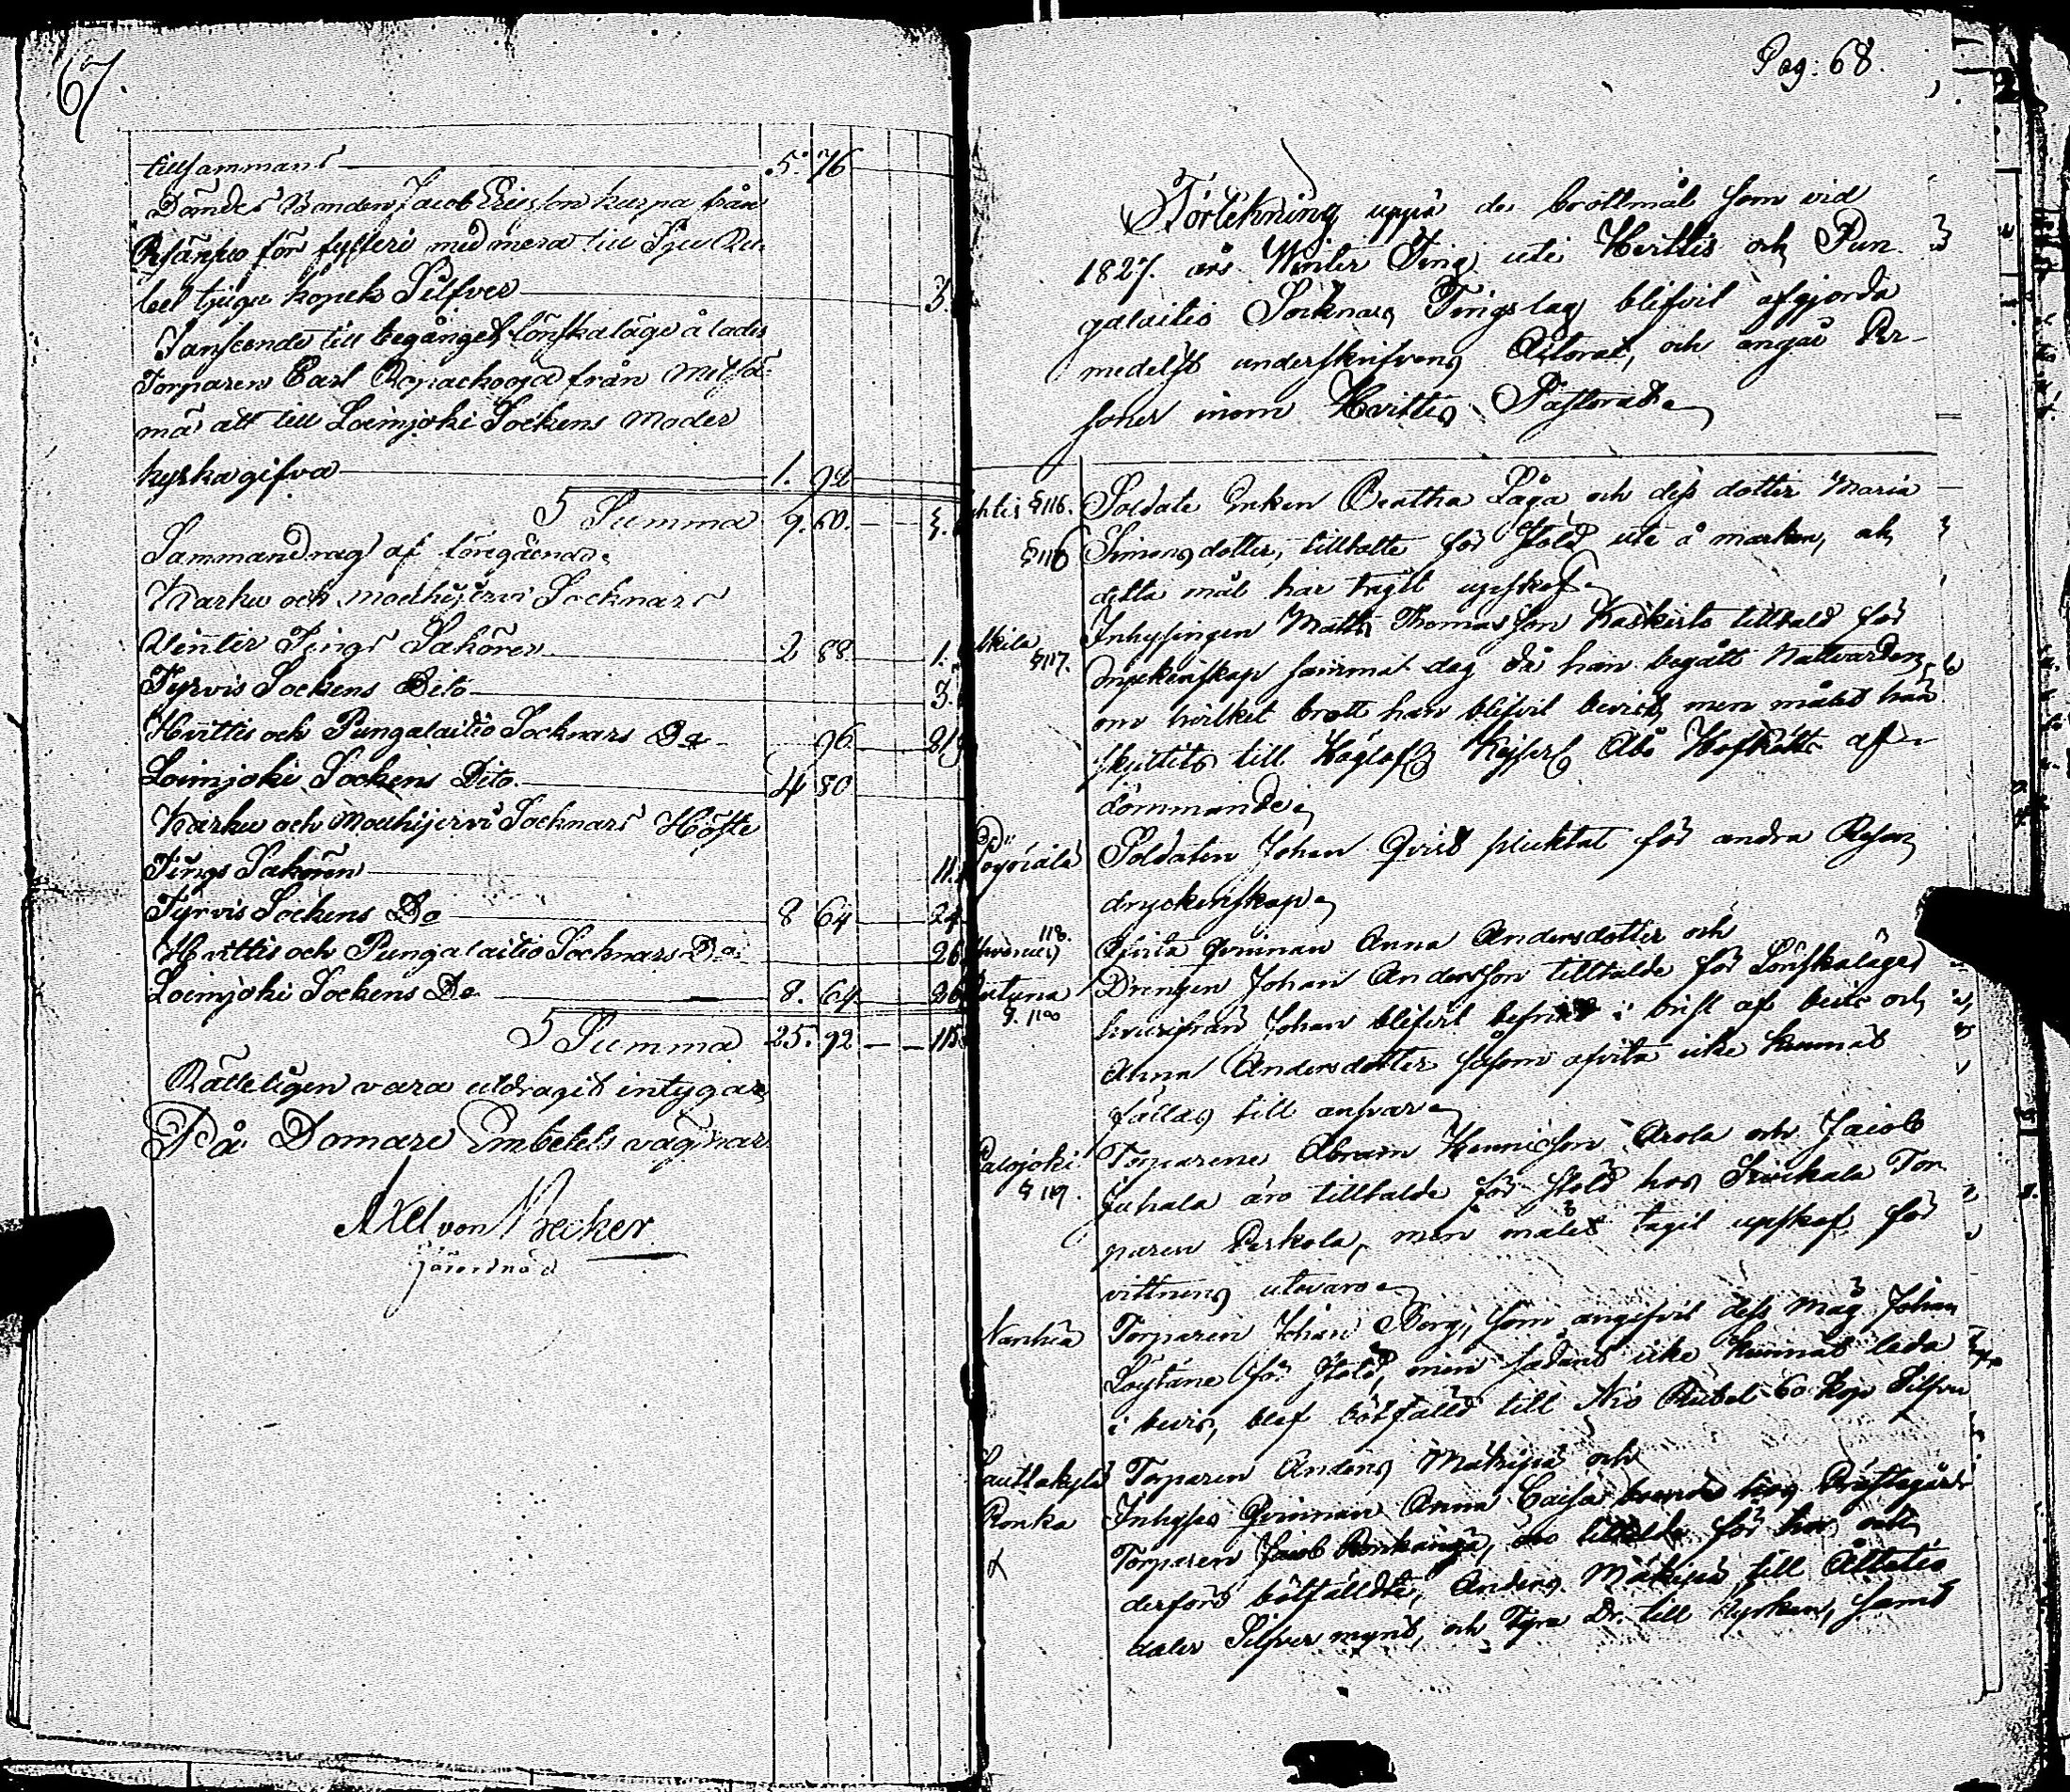 67.
tillsammans 5. 76
Dömdes Bonden Jacob Ericsson Kurpa från
för fylleri med mera till Sju Ru-
bel tjugu kopek Silfver
I anseende till begånget lönskaläge ålades
Torparen Carl från
mä att till Loimjoki Sockens Moder
kyrka gifva 1. 92
Summa 9. 60.
Sammandrag af föregående
Karku och Mouhijervi Socknars
Vinter Tings Sakören 2 88 1.
Tyrvis Sockens Dito 3.
Hvittis och Pungalaitio Socknars Do 96 81
Loimjoki Sockens Dito 4 80
Karku och Mouhijervi Socknars Höste
Tings Sakören 11.
Tyrvis Sockens Do 8 64 24
Hvittis och Pungalaitio Socknars Do 26
Loimjoki Sockens Do 8. 64 26
Summa 25. 92 115
Rätteligen vara utdragit intygar
På Domare Embetets vägnar
Axel von Becker
förordnad
Pag: 68.
Förtekning uppå de brottmål som vid
1827 års Winter Ting uti Hvittis och Pun-
galaitio Socknars Tingslag blifvit afgjorda
medelst underskrifvens och angår Per-
soner inom Hvittis Pastorat
§ 116. Soldats Enkan Beatha Låga och dess dotter Maria
§ 116 Simonsdotter, tilltalte för stöld ute å marken, och
detta mål har tagit upskof
skila Inhysingen Matts Thomasson tilltald för
§ 117. dryckenskap samma dag då han begått Nattvarden,
om hvilket brott han blifvit bevist, men målet hän-
skjutits till Högloflg Keijserlg Åbo HofRätts af-
dömmande
Soldaten Johan Qvist pliktat för andra Resan
dryckenskap
118. Afvita Qvinnan Anna Andersdotter och
Drengen Johan Andersson tilltalde för Lönskaläger
§. 118 hvarifrån Johan blifvit befriad i brist af bevis och
Anna Andersdotter såsom afvita icke kunnat
fällas till ansvar
Palojoki Torparene Abram Henricsson Arola och Jacob
§ 119. Juhala äro tilltalde för stöld hos Tor-
paren Perkola, men målet tagit upskof för
vittnens utevaro
Nanhia Torparen Johan Borg, som angifvit dess Måg Johan
Löytäne för stöld, men sådant icke kunnat leda
i bevis, blef bötfälld till Nio Rubel 60 kop Silfver
Sauttakylä Torparen Anders Mäkipä och
Ronka Inhyses Qvinnan Anna Caisa boende hos Prästegårds
Torparen Jacob äro tilltalde för hor och
derföre bötfälldte, Anders Mäkipä till Åttatio
daler Silfver mynt, och Fyra Dr. till kyrkan, samt